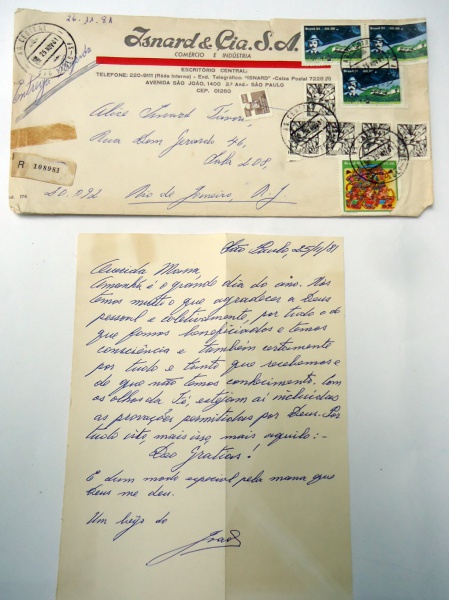 26.11.81
Isnard & Cia. S.A.
COMÉRCIO E INDÚSTRIA
ESCRITÓRIO CENTRAL:
TELEFONE: 220-9111 (Rêde Interna) - End. Telegráfico "ISNARD" - Caixa Postal 7228
AVENIDA SÃO JOÃO, 1400 2.º And. - SÃO PAULO
CEP. 01260
Alice Isnard
Rua Dom Gerardo 46,
Sala 208,
20.092 Rio de Janeiro, RJ
R 108983
São Paulo, 25/11/81
Querida Mana,
Amanhã é o grande dia do ano. Nós
temos muito o que agradecer a Deus
pessoal e coletivamente, por tudo o de
que fomos beneficiados e temos
consciência e também certamente
por tudo e tanto que recebemos e
de que não temos conhecimento. Com
os olhos da Fé, estejam aí incluídas
as provações permitidas por Deus. Por
tudo isto, mais isso, mais aquilo: -
Deo Gratias!
E dum modo especial pela mana que
Deus me deu.
Um beijo do